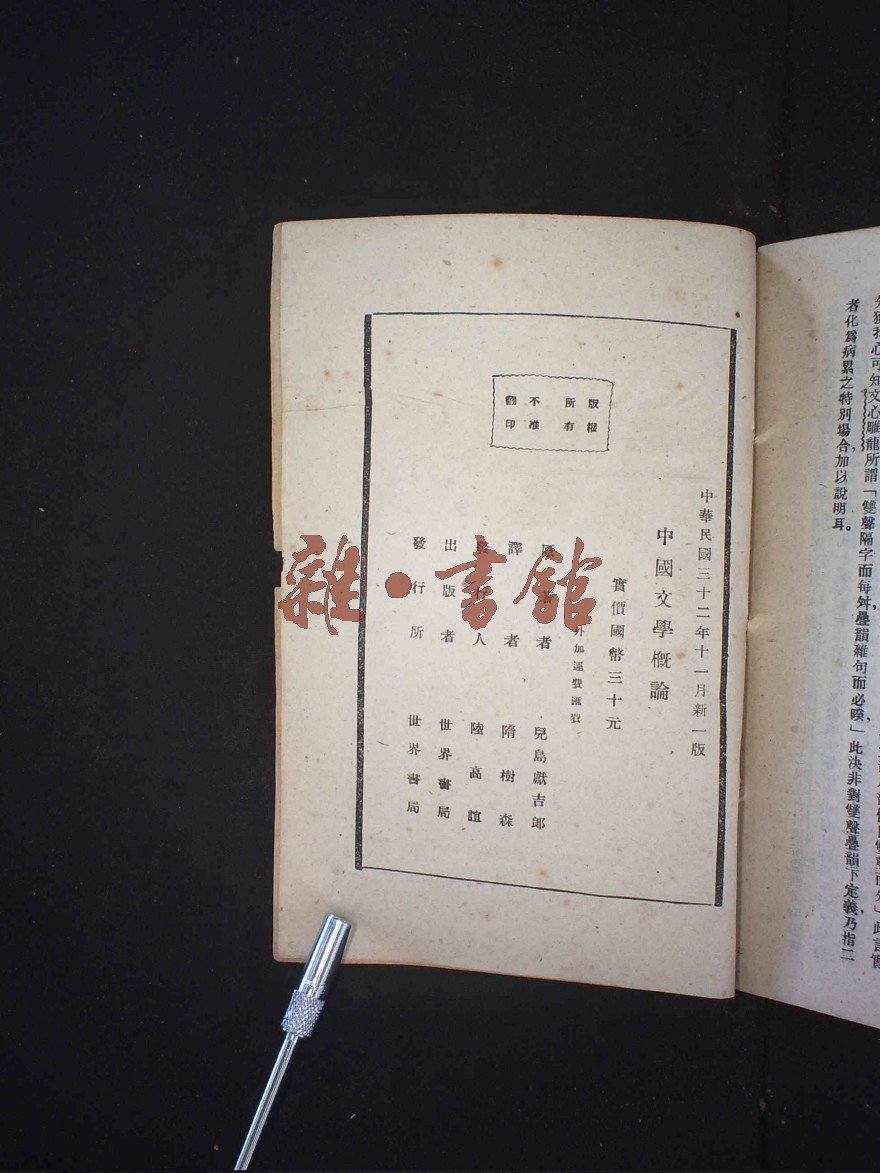 分獲我心可知文心雕龍所謂「雙聲隔字而每舛疊韻雜句而必睽」此決非對雙聲疊韻下定義乃指二
者化爲病累之特別場合加以說明耳。
版權
所有
不准
翻印
中華民國三十二年十一月新一版
中國文學概論
實價國幣三十元
外加運費匯費
原著者 兒島獻吉郎
譯者 隋樹森
發行人 陸高誼
出版者 世界書局
發行所 世界書局
雜·書館